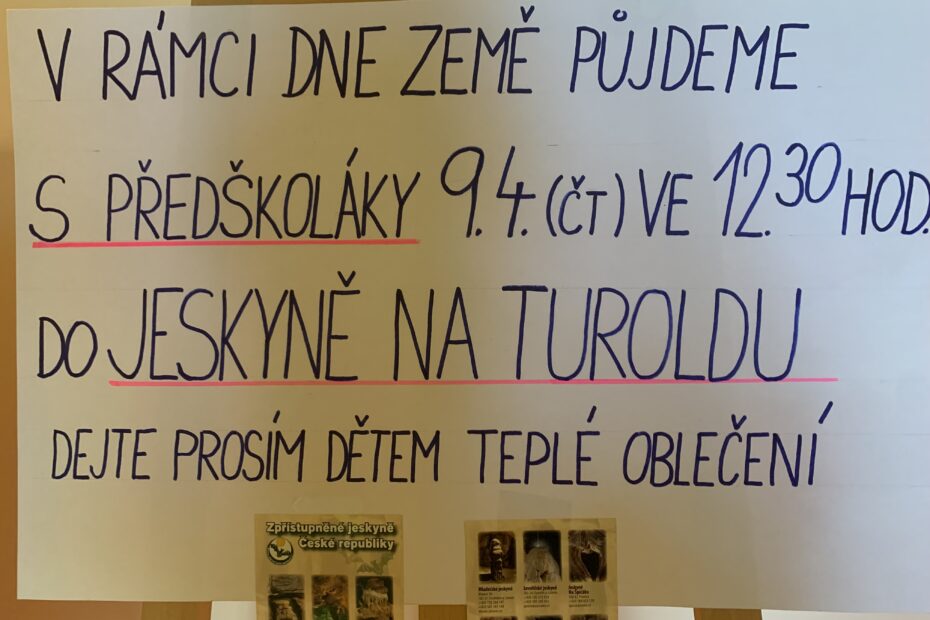 V RÁMCI DNE ZEMĚ PŮJDEME
S PŘEDŠKOLÁKY 9.4. (ČT) VE 12.30 HOD.
DO JESKYNĚ NA TUROLDU
DEJTE PROSÍM DĚTEM TEPLÉ OBLEČENÍ
Zpřístupněné jeskyně
České republiky